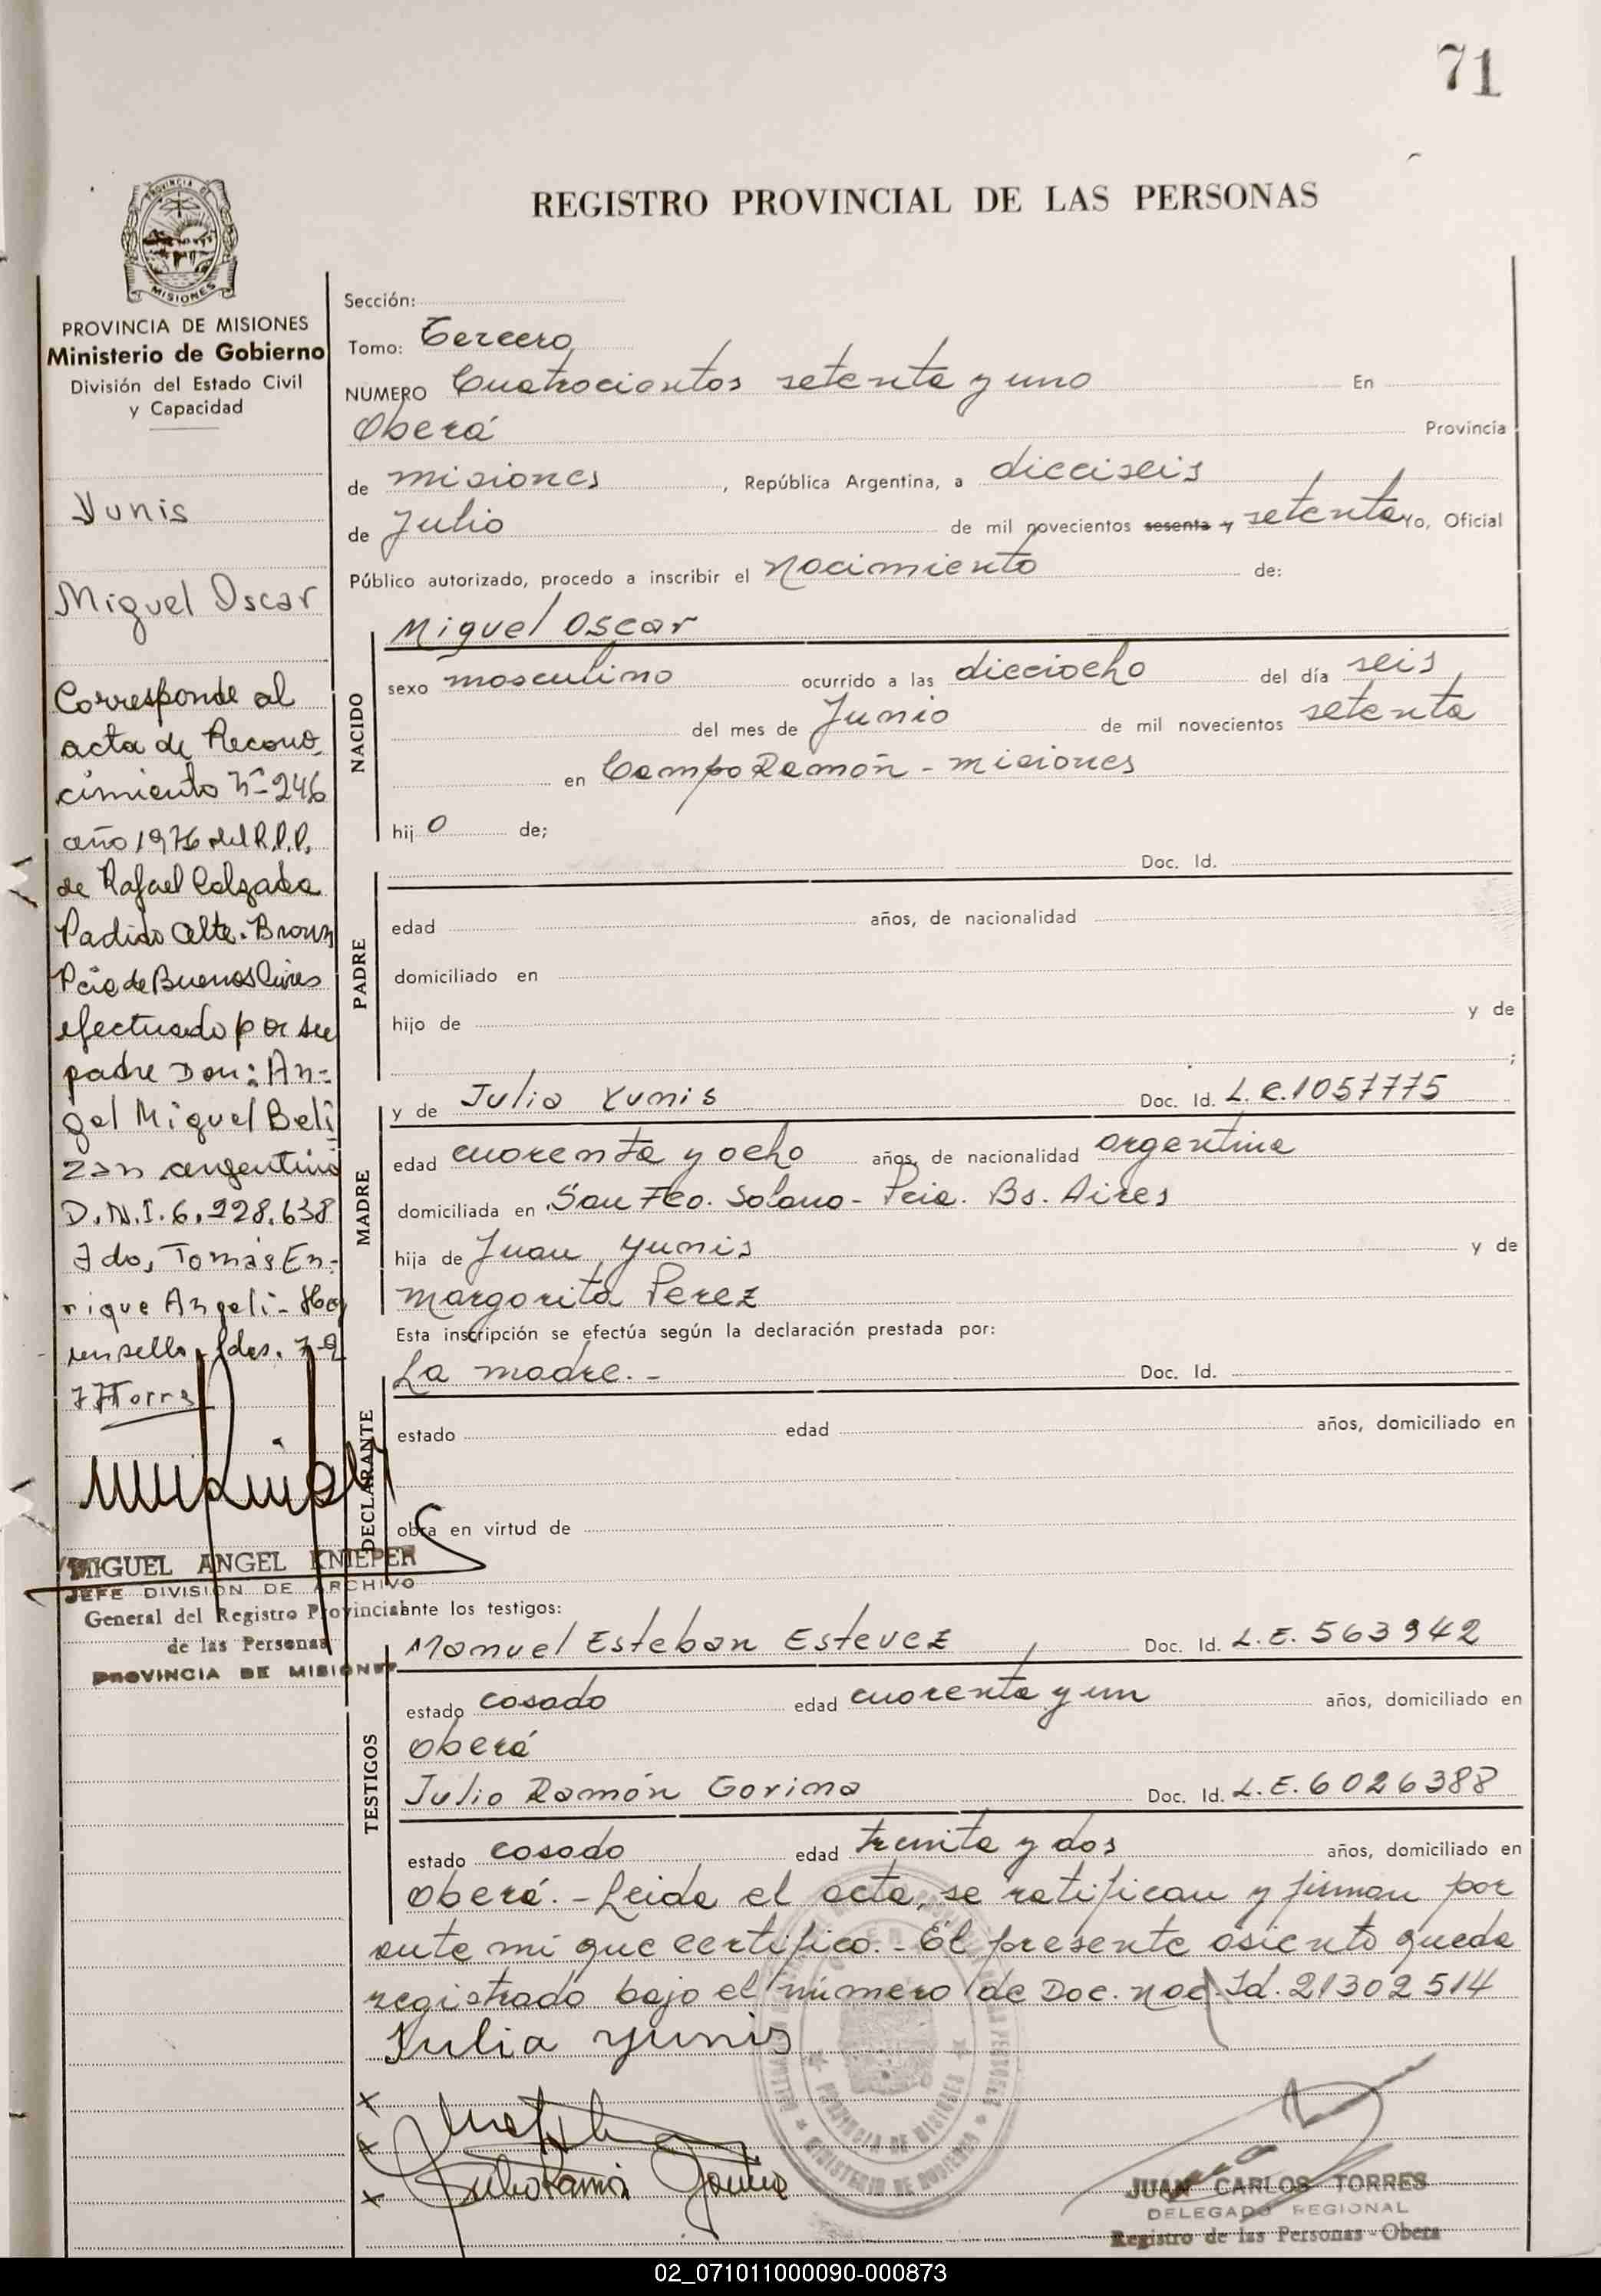 71
REGISTRO PROVINCIAL DE LAS PERSONAS
MISIONES
PROVINCIA DE MISIONES
Ministerio de Gobierno
División del Estado Civil
y Capacidad
Yunis
Miguel Oscar
Corresponde al
acta de Recono
cimiento Nº 246
año 1976 del R.P.P.
de Rafael Calzada
Partido Alte. Brown
Pcia de Buenos Aires
efectuado por su
padre Don: An-
gel Miguel Beli
zan argentino
D.N.I. 6.228.638
Fdo, Tomás En-
rique Angeli - Hay
un sello fdos.
JTorres
MIGUEL ANGEL KNIEPER
JEFE DIVISION DE ARCHIVO
General del Registro Provincial
de las Personas
PROVINCIA DE MISIONES
Sección:
Tomo: Tercero
NUMERO Cuatrocientos setenta y uno En
Oberá Provincia
de misiones , República Argentina, a dieciseis
de Julio de mil novecientos sesenta y setenta Yo, Oficial
Público autorizado, procedo a inscribir el nacimiento de:
NACIDO
Miguel Oscar
sexo masculino ocurrido a las dieciocho del día seis
del mes de Junio de mil novecientos setenta
en Campo Ramón - misiones
hij o de;
PADRE
Doc. Id.
edad años, de nacionalidad
domiciliado en
hijo de y de
;
MADRE
y de Julia Yunis Doc. Id. L.C. 1057775
edad cuarenta y ocho años, de nacionalidad argentina
domiciliada en San Fco. Solano - Pcia. Bs. Aires
hija de Juan Yunis y de
margarita Perez
Esta inscripción se efectúa según la declaración prestada por:
DECLARANTE
La madre. - Doc. Id.
estado edad años, domiciliado en
obra en virtud de
ante los testigos:
TESTIGOS
Manuel Esteban Estevez , Doc. Id. L.E. 563942
estado casado edad cuarenta y un años, domiciliado en
Oberá
Julio Ramón Gorina Doc. Id. L.E. 6026388
estado casado edad treinta y dos años, domiciliado en
Oberá. - Leida el acta, se ratifican y firman por
ante mi que certifico. - El presente asiento queda
registrado bajo el número de Doc. nac. Id. 21302514
Julia yunis
PROVINCIA DE MISIONES
MINISTERIO DE GOBIERNO
Julio Ramón Gorina
JUAN CARLOS TORRES
DELEGADO REGIONAL
Registro de las Personas - Oberá
02_071011000090-000873